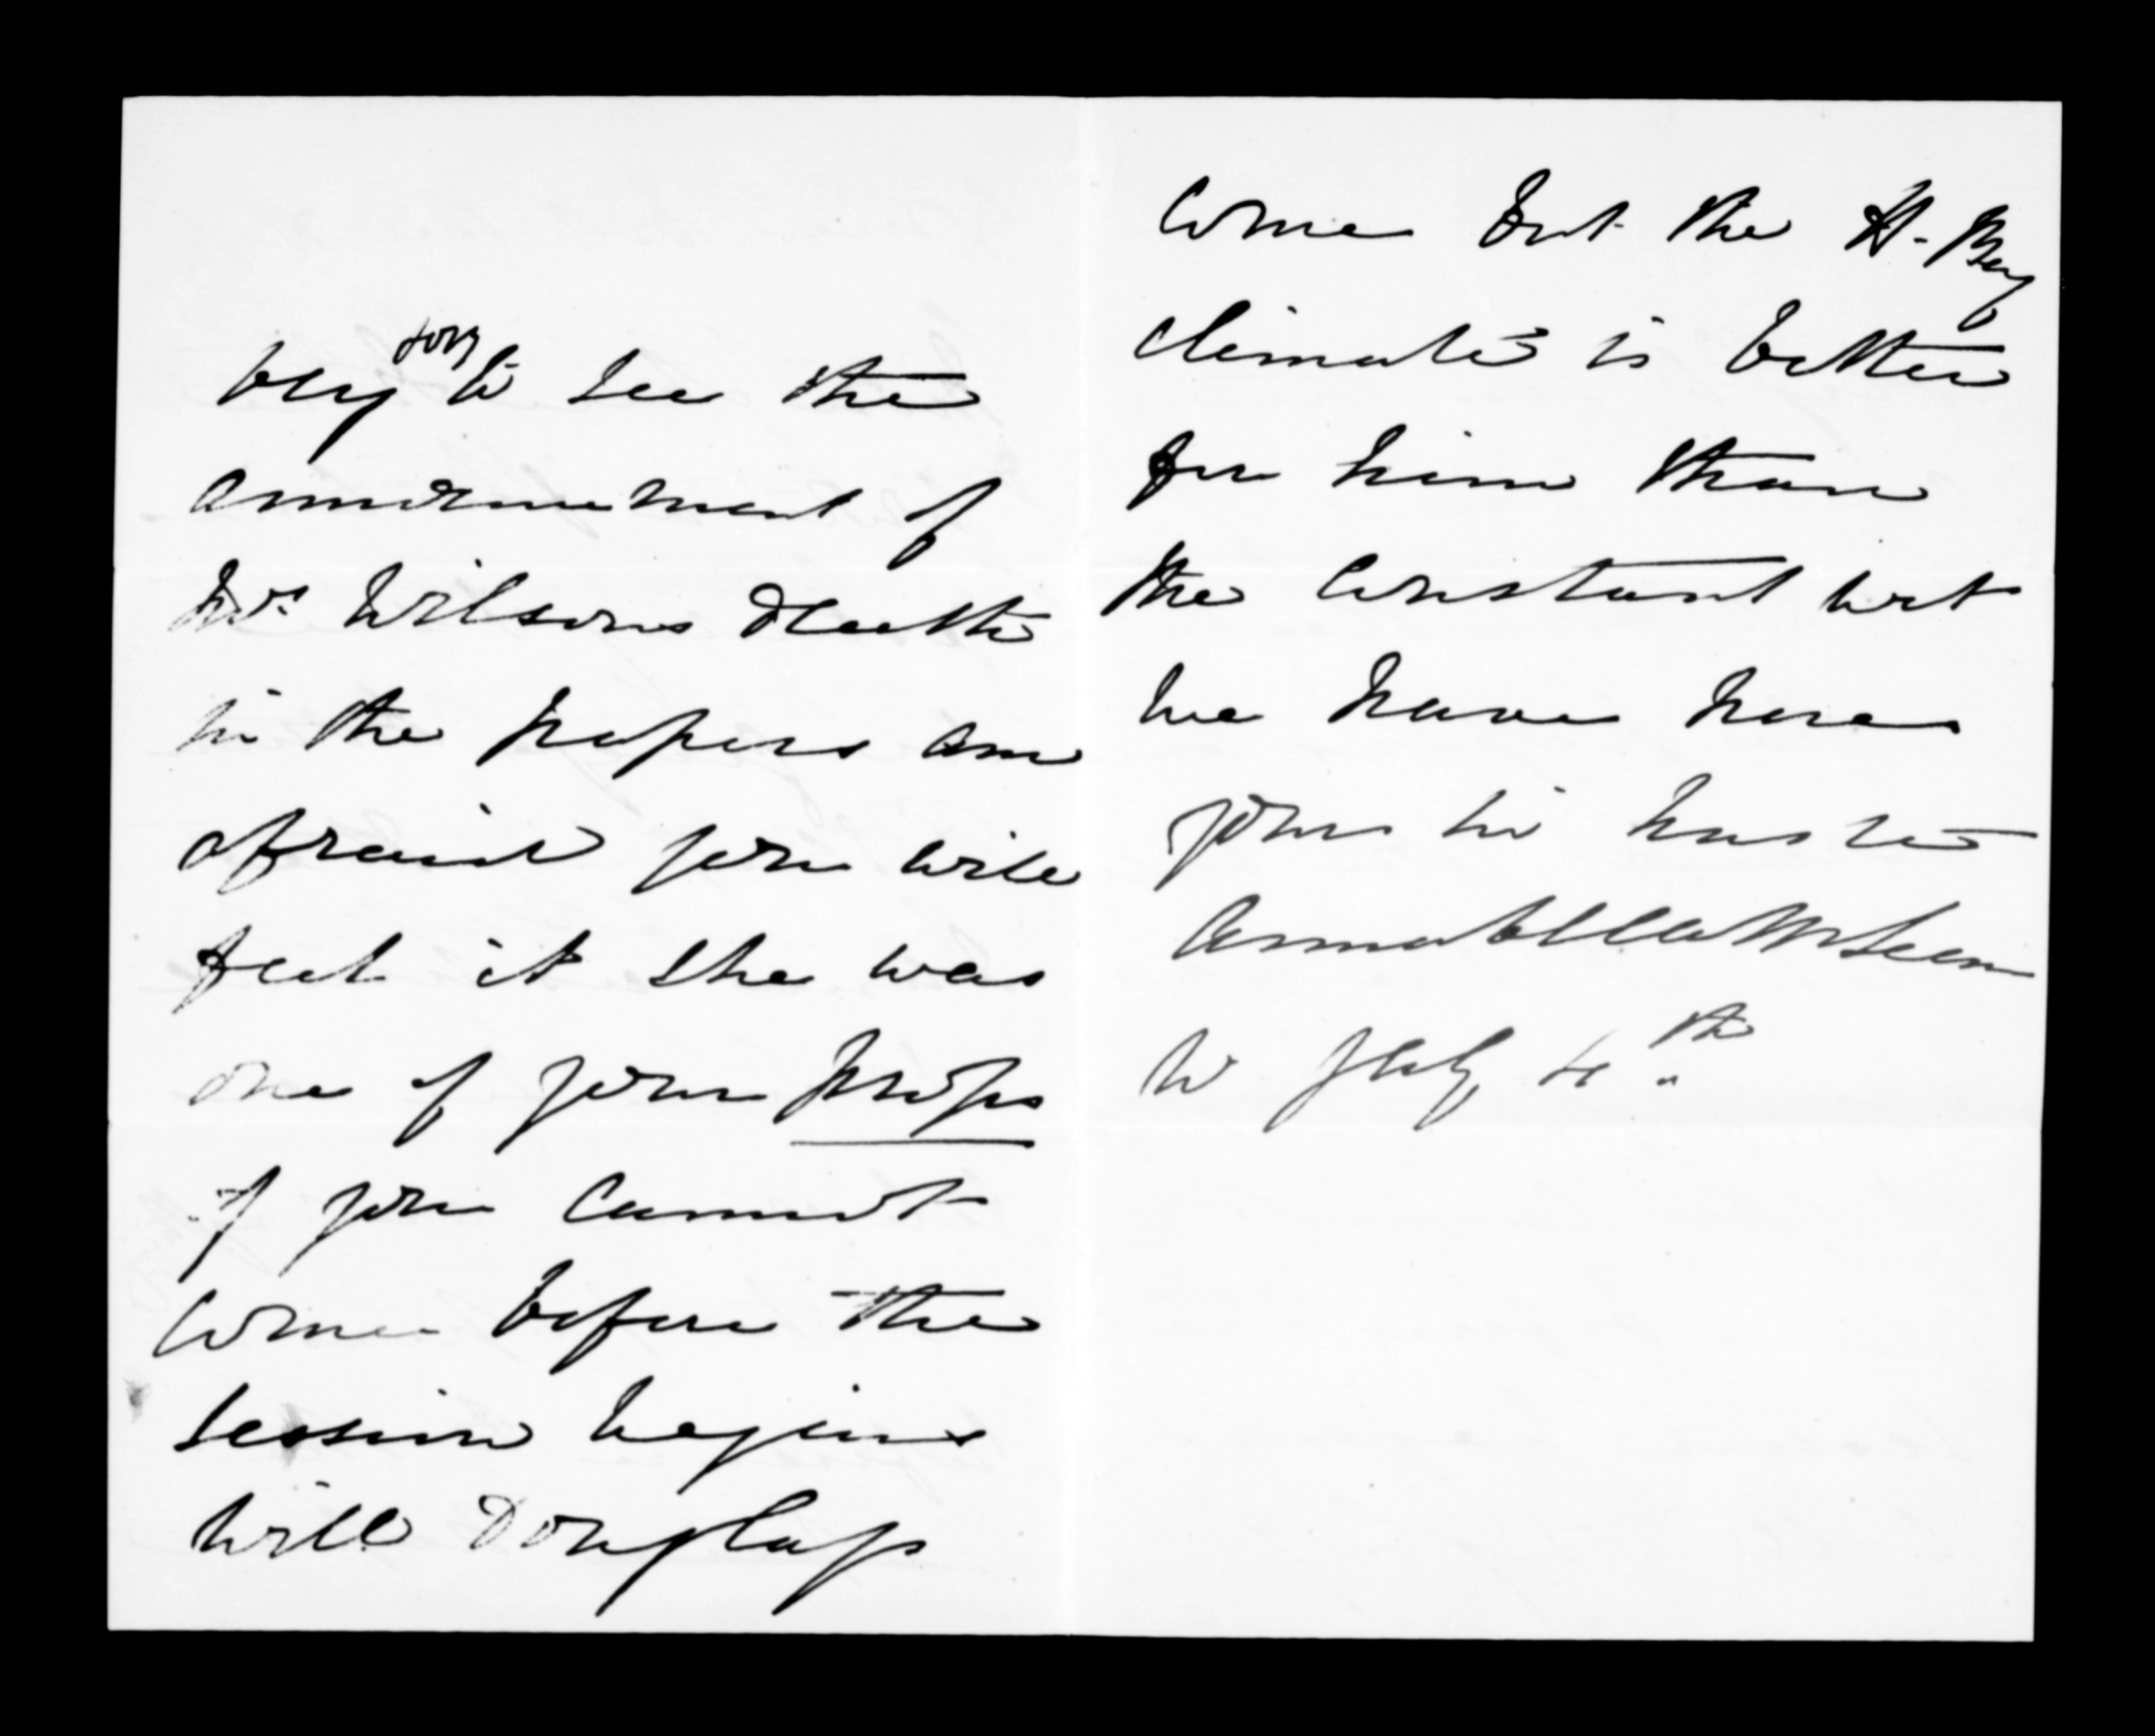 very sorry to see the
announcement of
Mrs Wilsons death
in the papers am
afraid you will
feel it she was
one of your props
if you cannot
come before the
session begins
will Douglass
come but the H. Bay
climate is better
for him than
the constant wet
we have here
yours in haste
Annabella McLean
W July 4th